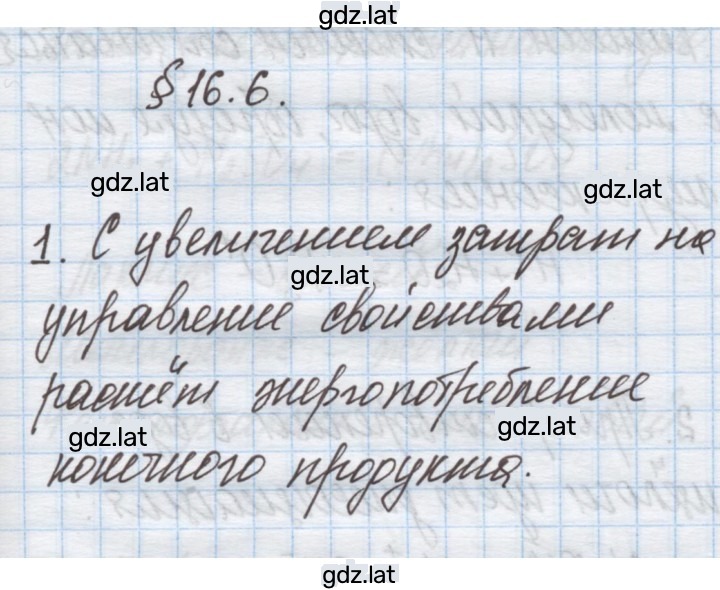 gdz.lat
§ 16.6.
gdz.lat
gdz.lat
1. С увеличением затрат на
gdz.lat
управление свойствами
растёт энергопотребление
gdz.lat
gdz.lat
конечного продукта.
gdz.lat